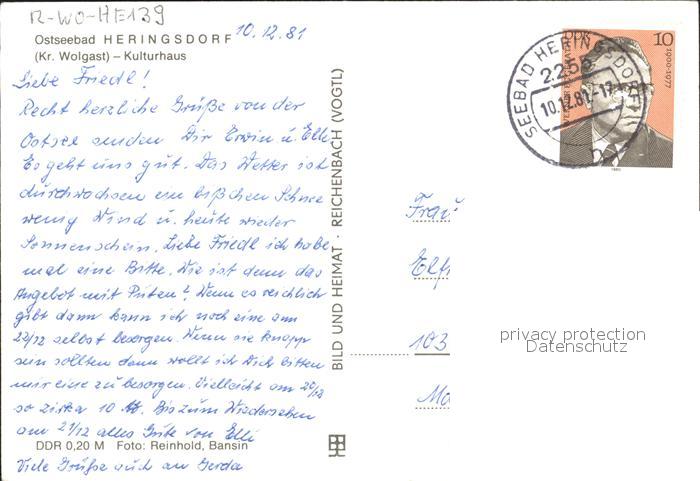 R-WO-HE139
Ostseebad HERINGSDORF
(Kr. Wolgast) – Kulturhaus
10.12.81
Liebe Friedl!
Recht herzliche Grüße von der
Ostsee senden Dir Erwin u. Elli.
Es geht uns gut. Das Wetter ist
durchwachsen ein bißchen Schnee
wenig Wind u. heute wieder
Sonnenschein. Liebe Friedl ich habe
mal eine Bitte. Wie ist denn das
Angebot mit Puten? Wenn es reichlich
gibt dann kann ich noch eine am
22/12 selbst besorgen. Wenn sie knapp
sein sollten dann wollt ich Dich bitten
mir eine zu besorgen. Vielleicht am 20/12
so zirka 10 Bis zum Wiedersehen
am 21/12 alles Gute von Elli
DDR 0,20 M Foto: Reinhold, Bansin
Viele Grüße auch an Gerda
BILD UND HEIMAT · REICHENBACH (VOGTL)
DDR
10
1900-1977
SEEBAD HERINGSDORF
2255
10.12.81
1980
Frau
Elfr
103
privacy protection
Datenschutz